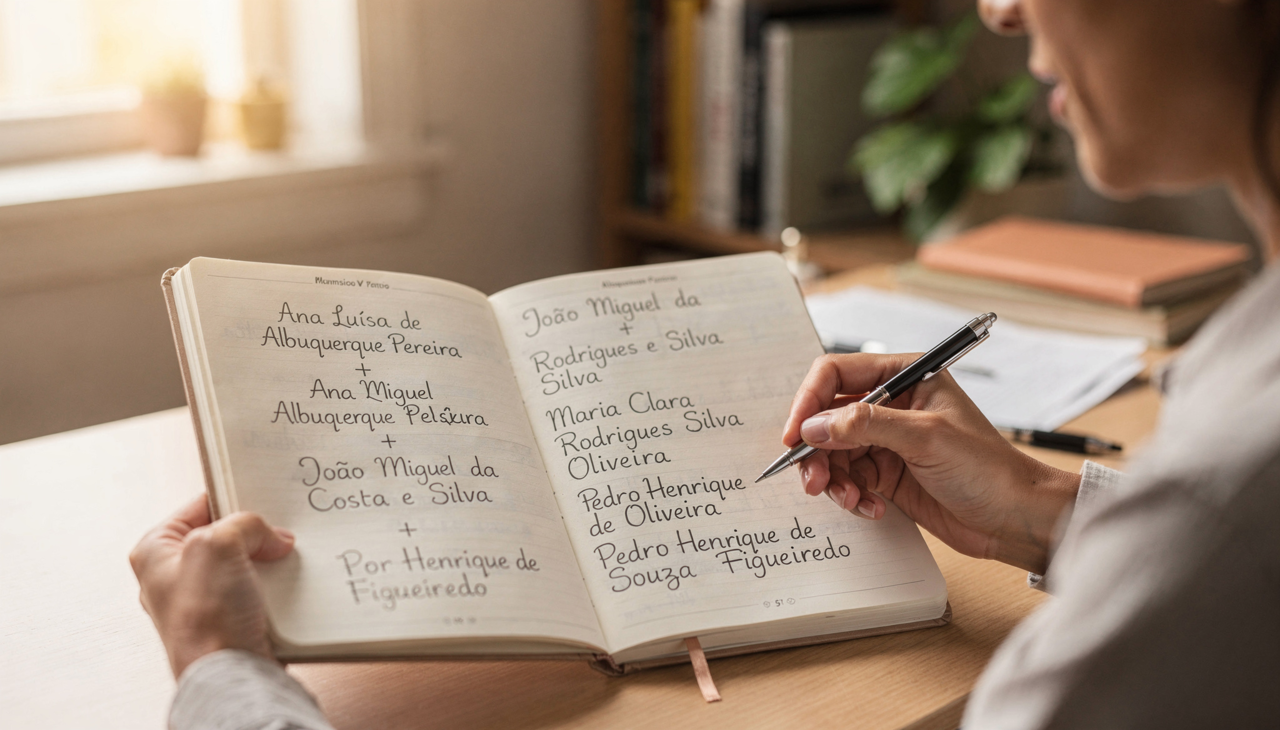 Ana Luísa de
Albuquerque Pereira
+
Ana Miguel
Albuquerque
+
João Miguel da
Costa e Silva
+
Por Henrique de
Figueiredo
João Miguel da
+
Rodrigues e Silva
Silva
Maria Clara
Rodrigues Silva
Oliveira
Pedro Henrique
de Oliveira
Pedro Henrique de
Souza Figueiredo